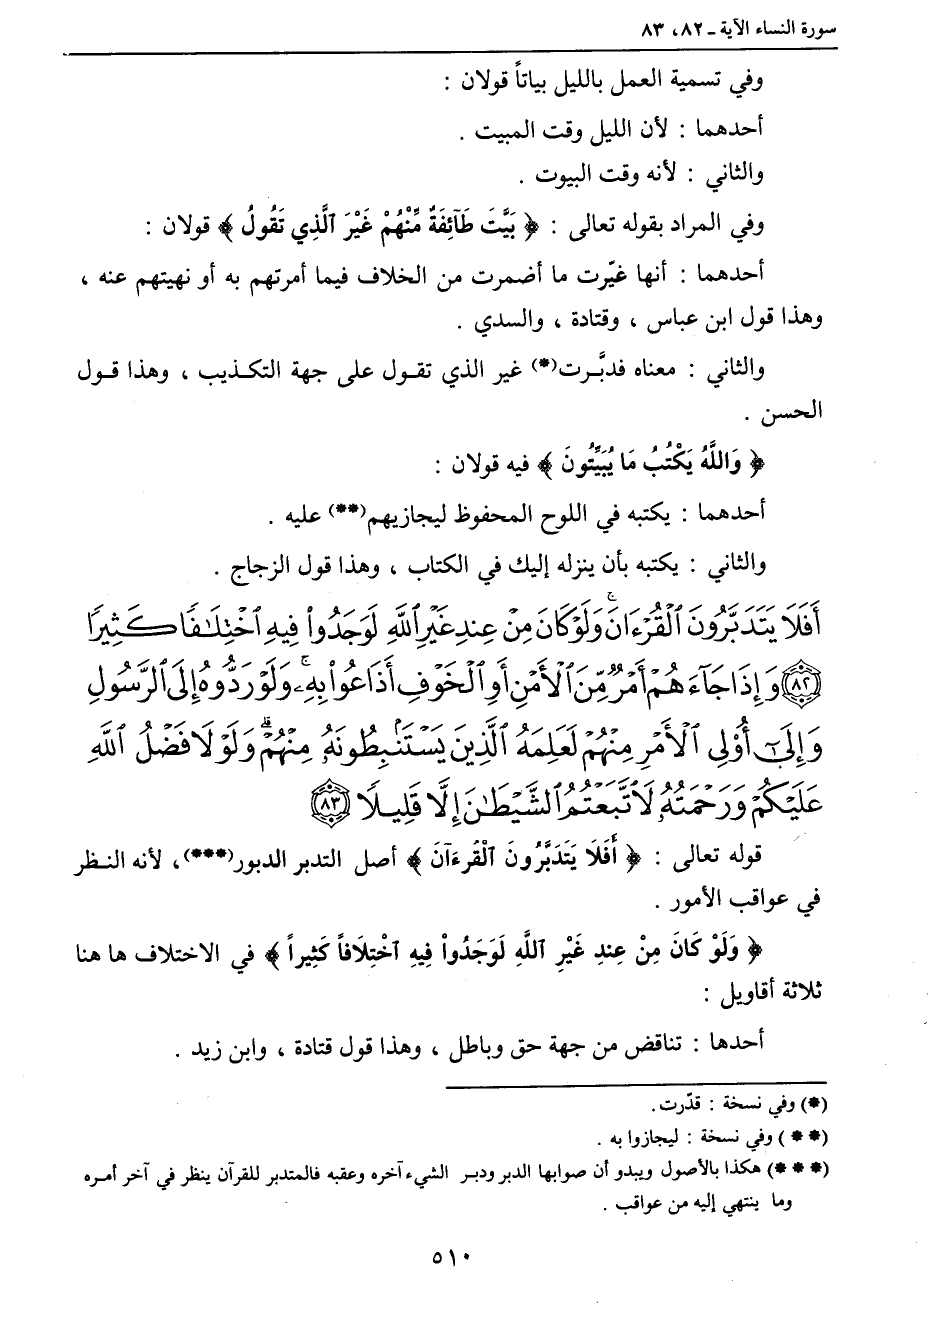 سورة النساء الآية ـ ٨٢، ٨٣
وفي تسمية العمل بالليل بياتاً قولان :
أحدهما : لأن الليل وقت المبيت .
والثاني : لأنه وقت البيوت .
وفي المراد بقوله تعالى : ﴿ بَيَّتَ طَآئِفَةٌ مِّنْهُمْ غَيْرَ ٱلَّذِي تَقُولُ ﴾ قولان :
أحدهما : أنها غيّرت ما أضمرت من الخلاف فيما أمرتهم به أو نهيتهم عنه ،
وهذا قول ابن عباس ، وقتادة ، والسدي .
والثاني : معناه فدبَّرت(*) غير الذي تقول على جهة التكذيب ، وهذا قول
الحسن .
﴿ وَاللَّهُ يَكْتُبُ مَا يُبَيِّتُونَ ﴾ فيه قولان :
أحدهما : يكتبه في اللوح المحفوظ ليجازيهم(**) عليه .
والثاني : يكتبه بأن ينزله إليك في الكتاب ، وهذا قول الزجاج .
أَفَلَا يَتَدَبَّرُونَ ٱلْقُرْءَانَۚ وَلَوْكَانَ مِنْ عِندِ غَيْرِ ٱللَّهِ لَوَجَدُواْ فِيهِ ٱخْتِلَٰفًا كَثِيرًا
﴿٨٢﴾ وَإِذَا جَآءَهُمْ أَمْرٌ مِّنَ ٱلْأَمْنِ أَوِ ٱلْخَوْفِ أَذَاعُواْ بِهِۦۚ وَلَوْ رَدُّوهُ إِلَى ٱلرَّسُولِ
وَإِلَىٰٓ أُوْلِى ٱلْأَمْرِ مِنْهُمْ لَعَلِمَهُ ٱلَّذِينَ يَسْتَنۢبِطُونَهُۥ مِنْهُمْۗ وَلَوْلَا فَضْلُ ٱللَّهِ
عَلَيْكُمْ وَرَحْمَتُهُۥ لَٱتَّبَعْتُمُ ٱلشَّيْطَٰنَ إِلَّا قَلِيلًا ﴿٨٣﴾
قوله تعالى : ﴿ أَفَلَا يَتَدَبَّرُونَ ٱلْقُرءَآنَ ﴾ أصل التدبر الدبور(***)، لأنه النظر
في عواقب الأمور .
﴿ وَلَوْ كَانَ مِنْ عِندِ غَيْرِ ٱللَّهِ لَوَجَدُواْ فِيهِ ٱخْتِلَافاً كَثِيراً ﴾ في الاختلاف ها هنا
ثلاثة أقاويل :
أحدها : تناقض من جهة حق وباطل ، وهذا قول قتادة ، وابن زيد .
(*) وفي نسخة : قدّرت .
(**) وفي نسخة : ليجازوا به .
(***) هكذا بالأصول ويبدو أن صوابها الدبر ودبر الشيء آخره وعقبه فالمتدبر للقرآن ينظر في آخر أمره
وما ينتهي إليه من عواقب .
٥١٠